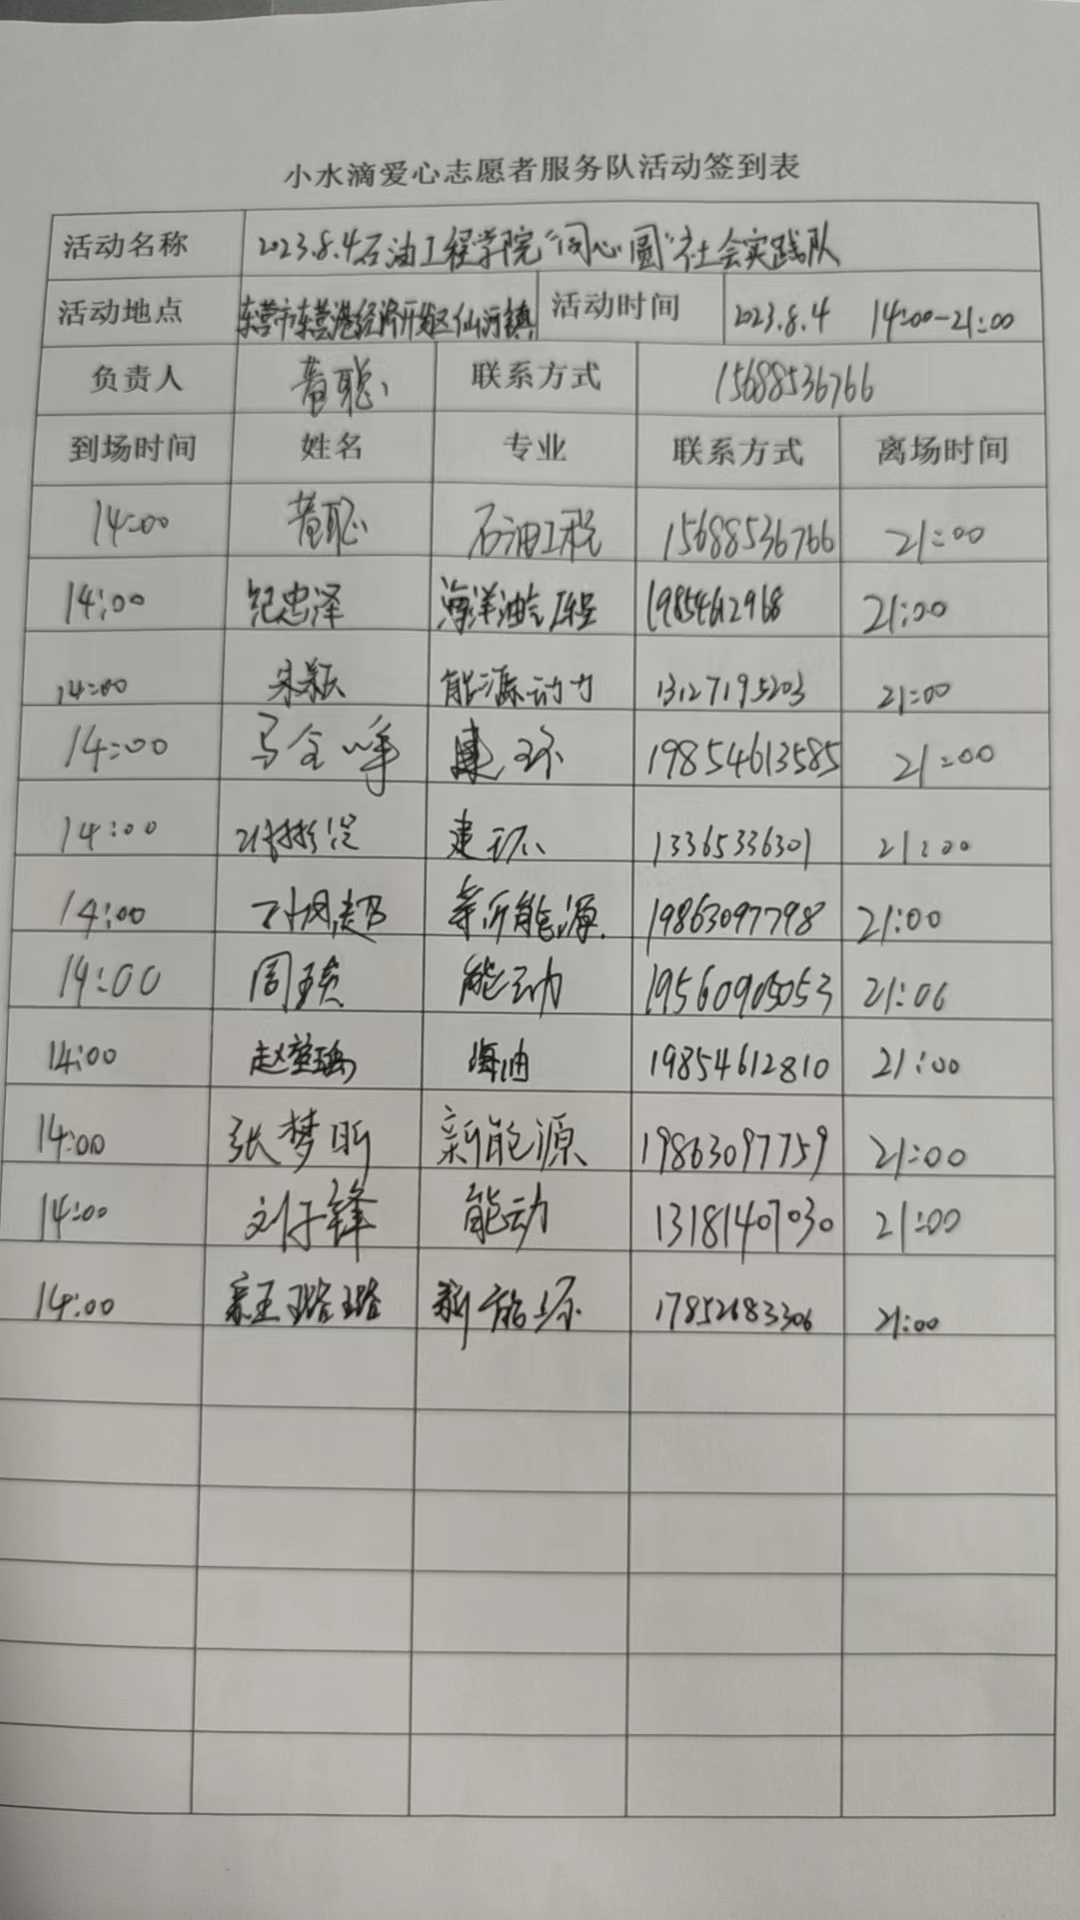 小水滴爱心志愿者服务队活动签到表
活动名称 2023.8.4石油工程学院“同心圆”社会实践队
活动地点 东营市东营港经济开发区仙河镇 活动时间 2023.8.4 14:00-21:00
负责人 黄聪 联系方式 15688536766
到场时间 姓名 专业 联系方式 离场时间
14:00 黄聪 石油工程 15688536766 21:00
14:00 纪忠泽 海洋油气工程 19854612968 21:00
14:00 宋颖 能源动力 13127195203 21:00
14:00 马全峰 建环 19854613585 21:00
14:00 建环 13365336301 21:00
14:00 新能源 19863097798 21:00
14:00 周 能动 19560905053 21:06
14:00 赵 海油 19854612810 21:00
14:00 张梦昕 新能源 19863097759 21:00
14:00 刘子锋 能动 13181407030 21:00
14:00 王璐璐 新能源 17852683306 21:00